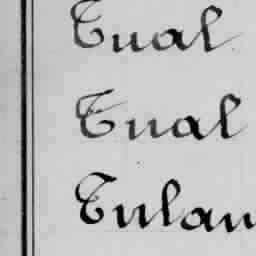 Tual
Tual
Tulau